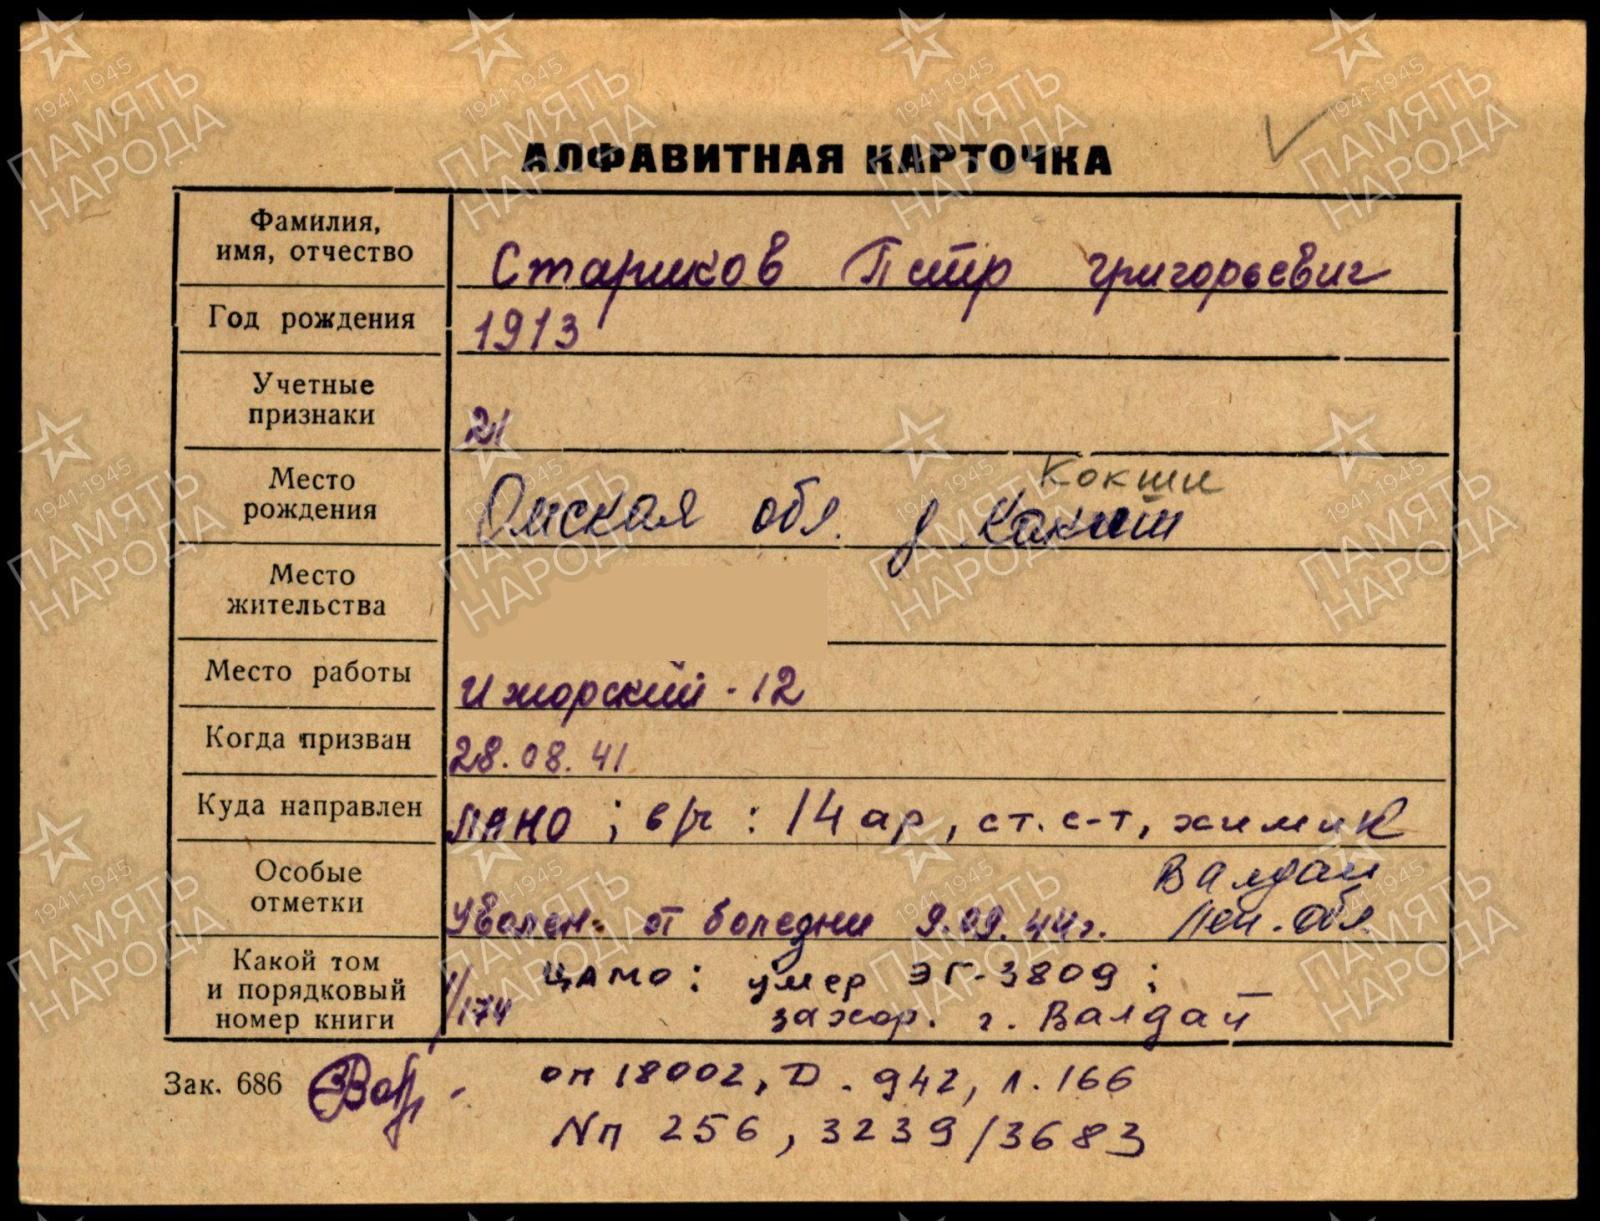 АЛФАВИТНАЯ КАРТОЧКА
Фамилия,
имя, отчество
Стариков Петр Григорьевич
Год рождения
1913
Учетные
признаки
21
Место
рождения
Кокши
Омская обл. д
Место
жительства
Место работы
Ижорский - 12
Когда призван
28.08.41
Куда направлен
ЛАНО; в/ч: 14 ар, ст. с-т, химик
Особые
отметки
Валдай
Лен. обл.
Уволен от болезни 9.09.44г.
Какой том
и порядковый
номер книги
1/174
ЦАМО: умер ЭГ-3809;
захор. г. Валдай
Зак. 686
оп 18002, Д. 942, л. 166
№п 256, 3239/3683
1941-1945
ПАМЯТЬ
НАРОДА